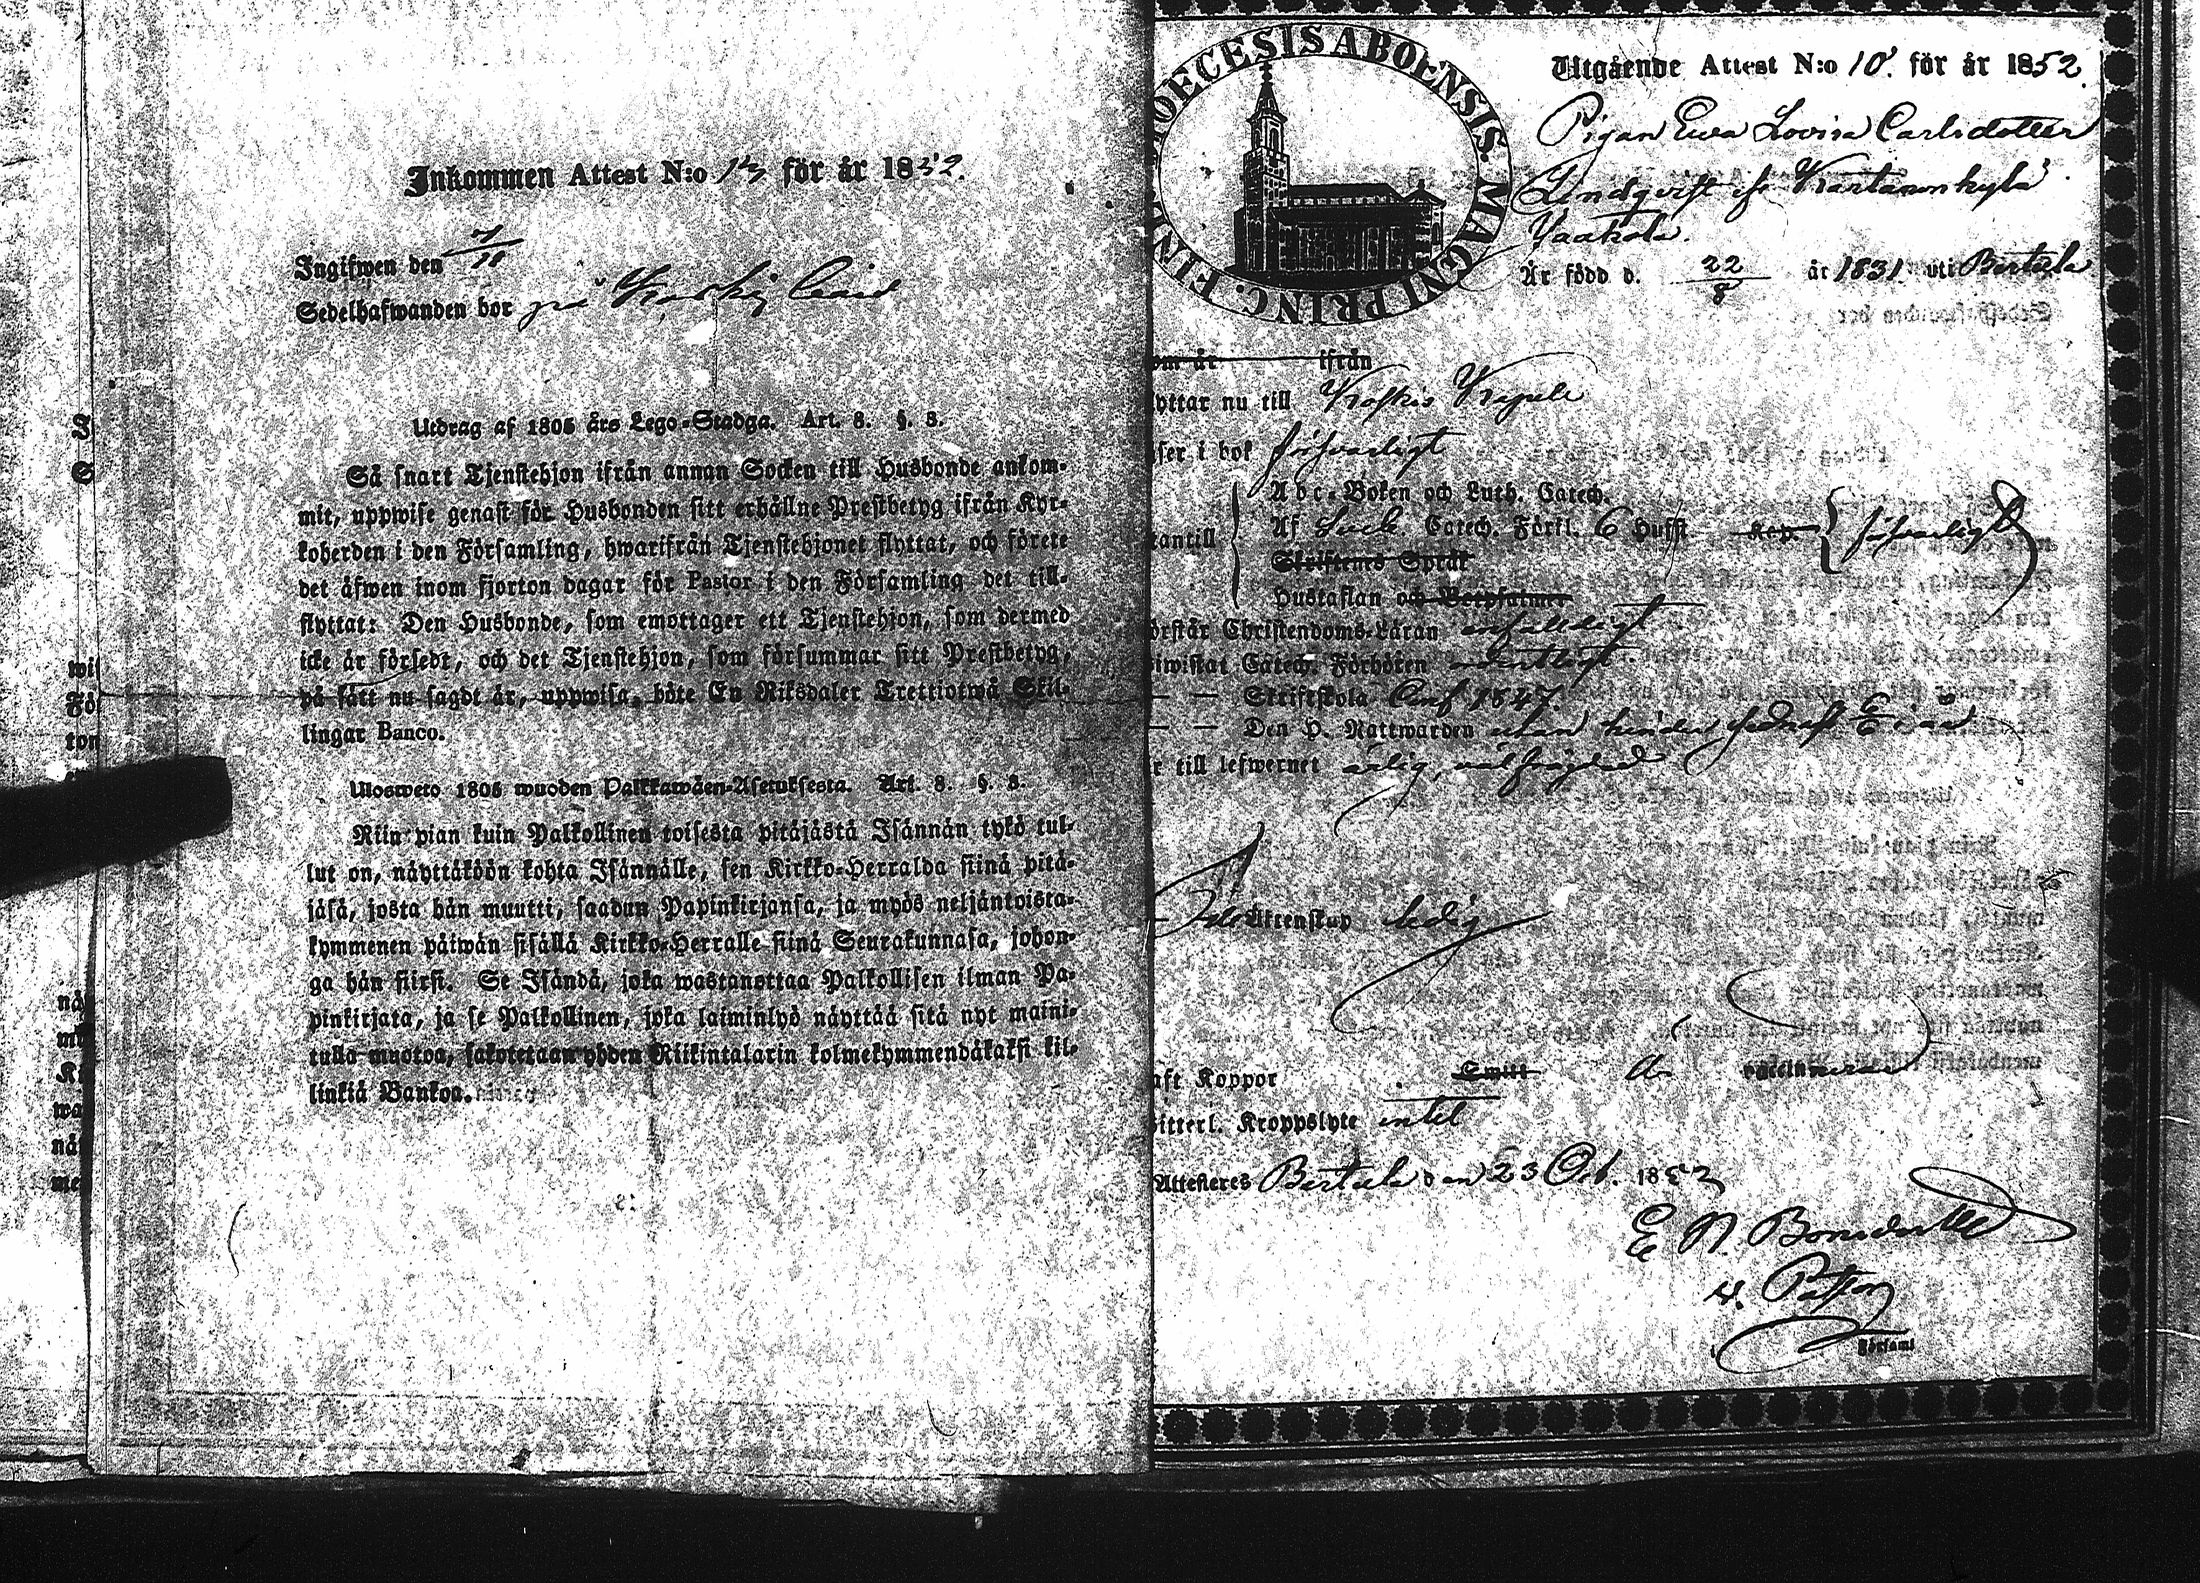 Inkommen Attest N:o 13 för år 1852.
Ingifwen den 7/11
Sedelhafwanden bor på
Utdrag af 1805 års Lego-Stadga. Art. 8. §. 3.
Så snart Tjenstehjon ifrån annan Socken till Husbonde ankom-
mit, uppwise genast för Husbonden sitt erhållne Prestbetyg ifrån Kyr-
koherden i den Församling, hwarifrån Tjenstehjonet flyttat, och förete
det äfwen inom fjorton dagar för Pastor i den Församling det till-
flyttat: Den Husbonde, som emottager ett Tjenstehjon, som dermed
icke är försedt, och det Tjenstehjon, som försummar sitt Prestbetyg,
på sätt nu sagdt är, uppwisa, böte En Riksdaler Trettiotwå Skil-
lingar Banco.
Ulosweto 1805 wuoden Palkkawäen-Asetuksesta. Art. 8. §. 3.
Niin pian kuin Palkollinen toisesta pitäjästä Isännän tykö tul-
lut on, näyttäköön kohta Isännälle, sen Kirkko-Herralda siinä pitä-
jäsä, josta hän muutti, saadun Papinkirjansa, ja myös neljäntoista-
kymmenen päiwän sisällä Kirkko-Herralle siinä Seurakunnasa, johon-
ga hän siirsi. Se Isändä, joka wastanottaa Palkollisen ilman Pa-
pinkirjata, ja se Palkollinen, joka laiminlyö näyttää sitä nyt maini-
tulla muotoa, sakotetaan yhden Riikintalarin kolmekymmendäkaksi kil-
linkiä Bankoa.
DIOECESIS ABOENSIS. MAGNI PRINC. FINL.
Utgående Attest N:o 10. för år 1852.
Pigan Ewa Lovisa Carlsdotter
Lindqvist
Är född d. 22/8 år 1831. uti Bertula
om år ifrån
yttar nu till Koskis Kapell
ser i bok försvarligt
Abc-Boken och Luth. Catech.
tantill Af Catech. Förkl. 6 Hufst. Kop. försvarligt
Skriftenes Språk
Hustaflan och Botpsalmer
örstår Christendoms-Läran enfaldigt
iwistat Catech. Förhören ordentligt
— — Skriftskola Conf 1847.
— — Den H. Nattwarden utan hinder
r till lefwernet ärlig, välfrejdad
Äktenskap ledig
aft Koppor Smitt vaccinerad
itterl. Kroppslyte intet
Attesteres Bertula den 23 Oct. 1852
E N. Bonsdorff
v. Pastor
Församl